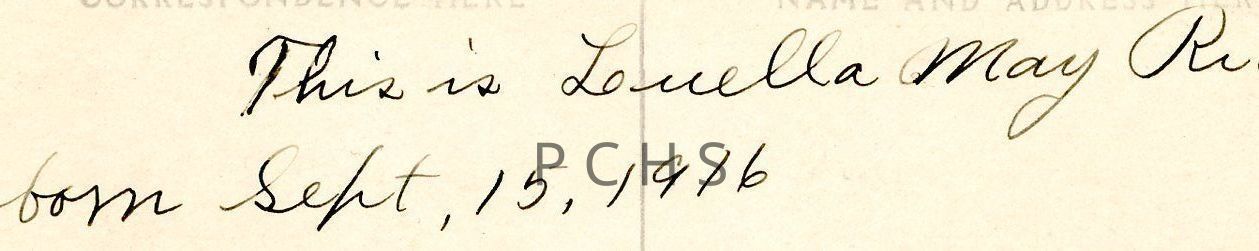 CORRESPONDENCE HERE NAME AND ADDRESS HERE
This is Louella May
PCHS
born Sept, 15, 1916